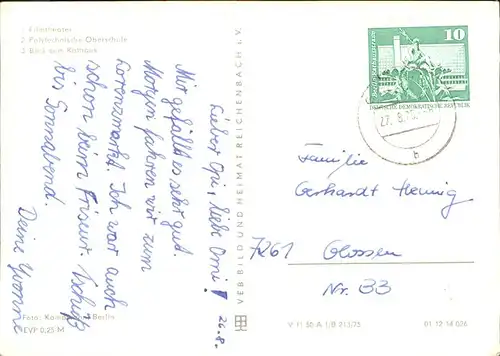 1 Filmtheater
2 Polytechnische Oberschule
3 Blick zum Rathaus
26.8.
Lieber Opi, liebe Omi!
Mir gefällt es sehr gut.
Morgen fahren wir zum
Lorenzmarkt. Ich war auch
schon beim Friseur. Tschüß
bis Sonnabend.
Deine Yvonne
Berlin
EVP 0,25 M
VERBILD UND HEIMAT REICHENBACH I. V.
10
Berlin, Rathausstrasse
DEUTSCHE DEMOKRATISCHE REPUBLIK
27. 8.
b
Familie
Gerhardt Hennig
7261 Glossen
Nr. 33
V 11 50 A 1/B 213/75
01 12 14 026